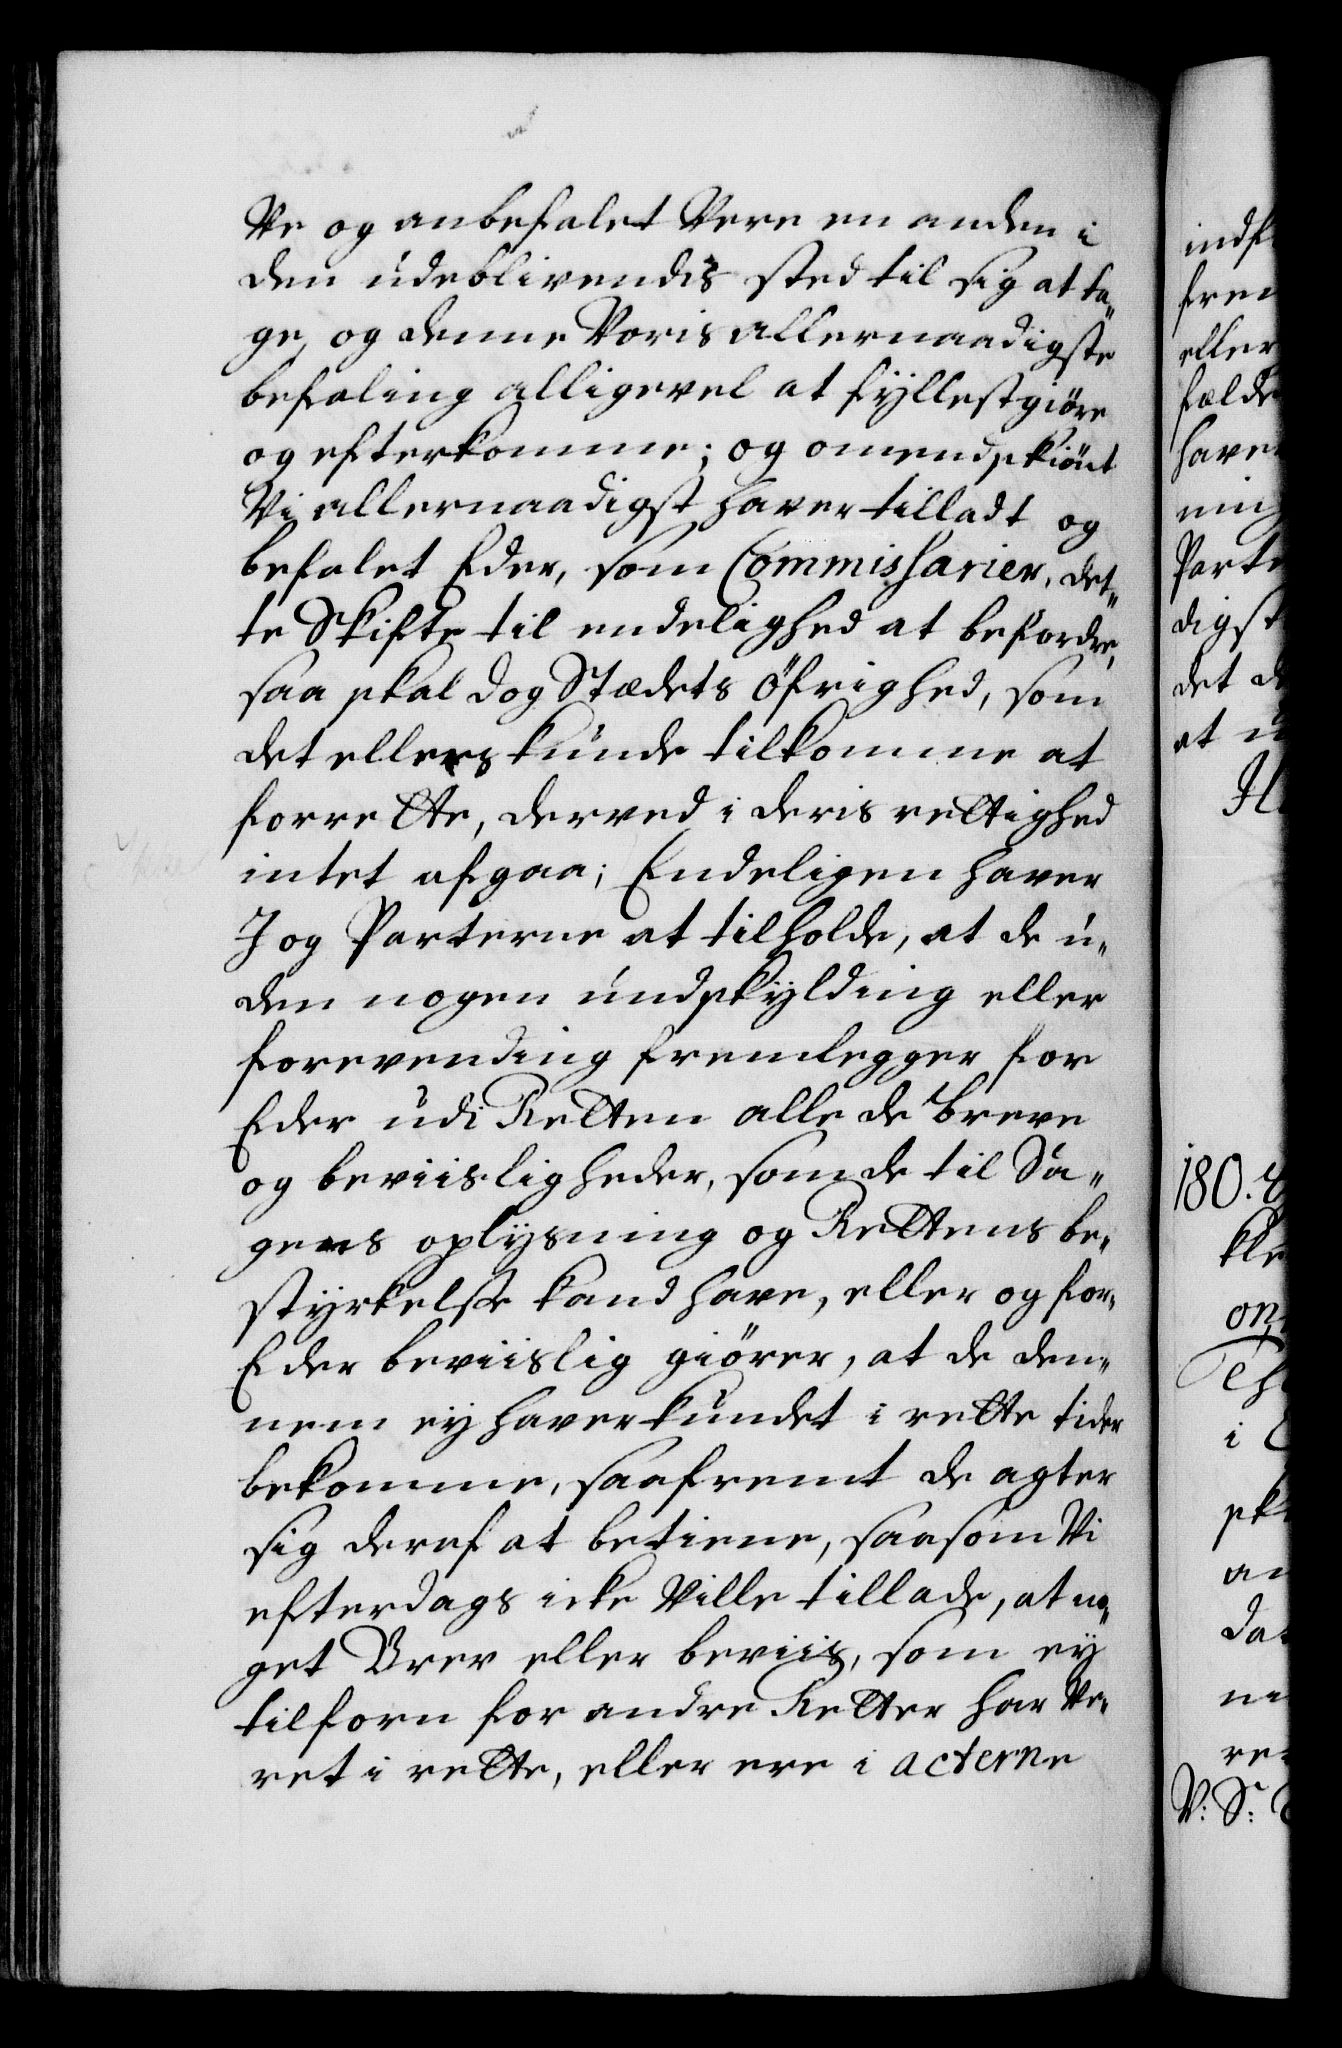 Ve og anbefalet Vere en anden i
den udeblivendis sted til sig at ta„
ge, og denne Voris allernaadigste
befaling alligevel at fyllestgiöre
og efterkomme; og omendskiönt
Vi allernaadigst haver tilladt og
befalet Eder, som Commissarier, det„
te Skifte til endelighed at befordre,
saa skal dog Stædets Öfrighed, som
det ellers kunde tilkomme at
forrette, derved i deris rettighed
intet afgaa; Endeligen haver
I og Parterne at tilholde, at de u„
den nogen undskylding eller
forevending fremlegger for
Eder udi Retten alle de breve
og beviisligheder, som de til Sa„
gens oplysning og Rettens be„
styrkelse kand have, eller og for„
Eder beviislig giörer, at de den„
nem ey haver kundet i rette tider
bekomme, saafremt de agter
sig deraf at betiene, saasom Vi
efterdags icke Ville tillade, at no„
get Brev eller beviis, som ey
tilforn for andre Retter har Ve„
ret i rette, eller ere i acterne
eller
180.